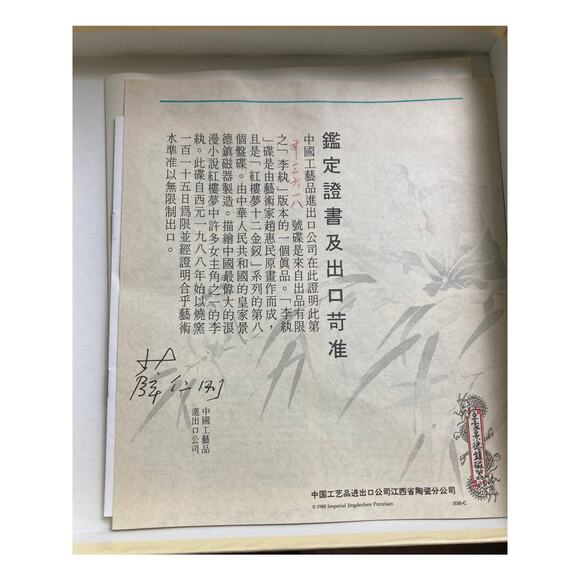 鑑定證書及出口苛准
中國工藝品進出口公司在此證明此第
號碟是來自出品有限
之「李紈」版本的一個眞品。「李紈
」碟是由藝術家趙惠民原畫作而成，
且是「紅樓夢十二金釵」系列的第八
個盤碟。由中華人民共和國的皇家景
德鎮磁器製造。描繪中國最偉大的浪
漫小說紅樓夢中許多女主角之一的李
紈。此碟自西元一九八八年始以燒窯
一百一十五日爲限並經證明合乎藝術
水準准以無限制出口。
中國工藝品
進出口公司
皇家景德鎮磁器
中国工艺品进出口公司江西省陶瓷分公司
© 1988 Imperial Jingdezhen Porcelain
1116-C